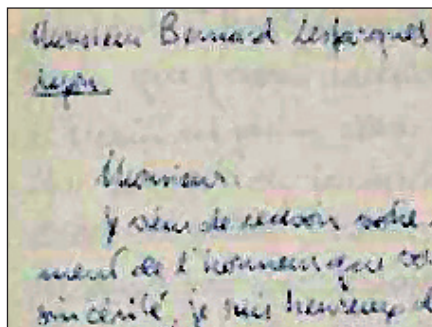 Monsieur Bernard Lesfargues
Lyon
Monsieur
Je viens de recevoir votre
ment de l'honneur que vou
sincérité, je suis heureux d